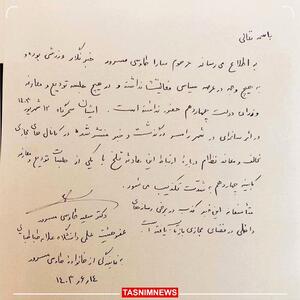 باسمه تعالی
به اطلاع می رساند مرحوم سارا خادمی مسرور خبرنگار ورزشی بوده و
به هیچ وجه در عرصه سیاسی فعالیت نداشته و در هیچ جلسه تودیع و معارفه
وزرای دولت چهاردهم حضور نداشته است. ایشان سحرگاه ۱۲ شهریور ۱۴۰۳
در اثر سانحه‌ای در شهر رامسر درگذشت و خبر منتشر شده در کانال های مجازی
مخالف و معاند نظام درباره ارتباط این حادثه تلخ با یکی از جلسات تودیع و معارفه
کابینه چهاردهم به شدت تکذیب می شود.
متأسفانه این خبر کذب در برخی رسانه‌های
داخلی و فضای مجازی بازتاب یافته است.
دکتر سعید خادمی مسرور
عضو هیئت علمی دانشگاه علامه طباطبایی
به نمایندگی از خانواده خادمی مسرور
۱۴۰۳/۶/۱۴
TASNIMNEWS